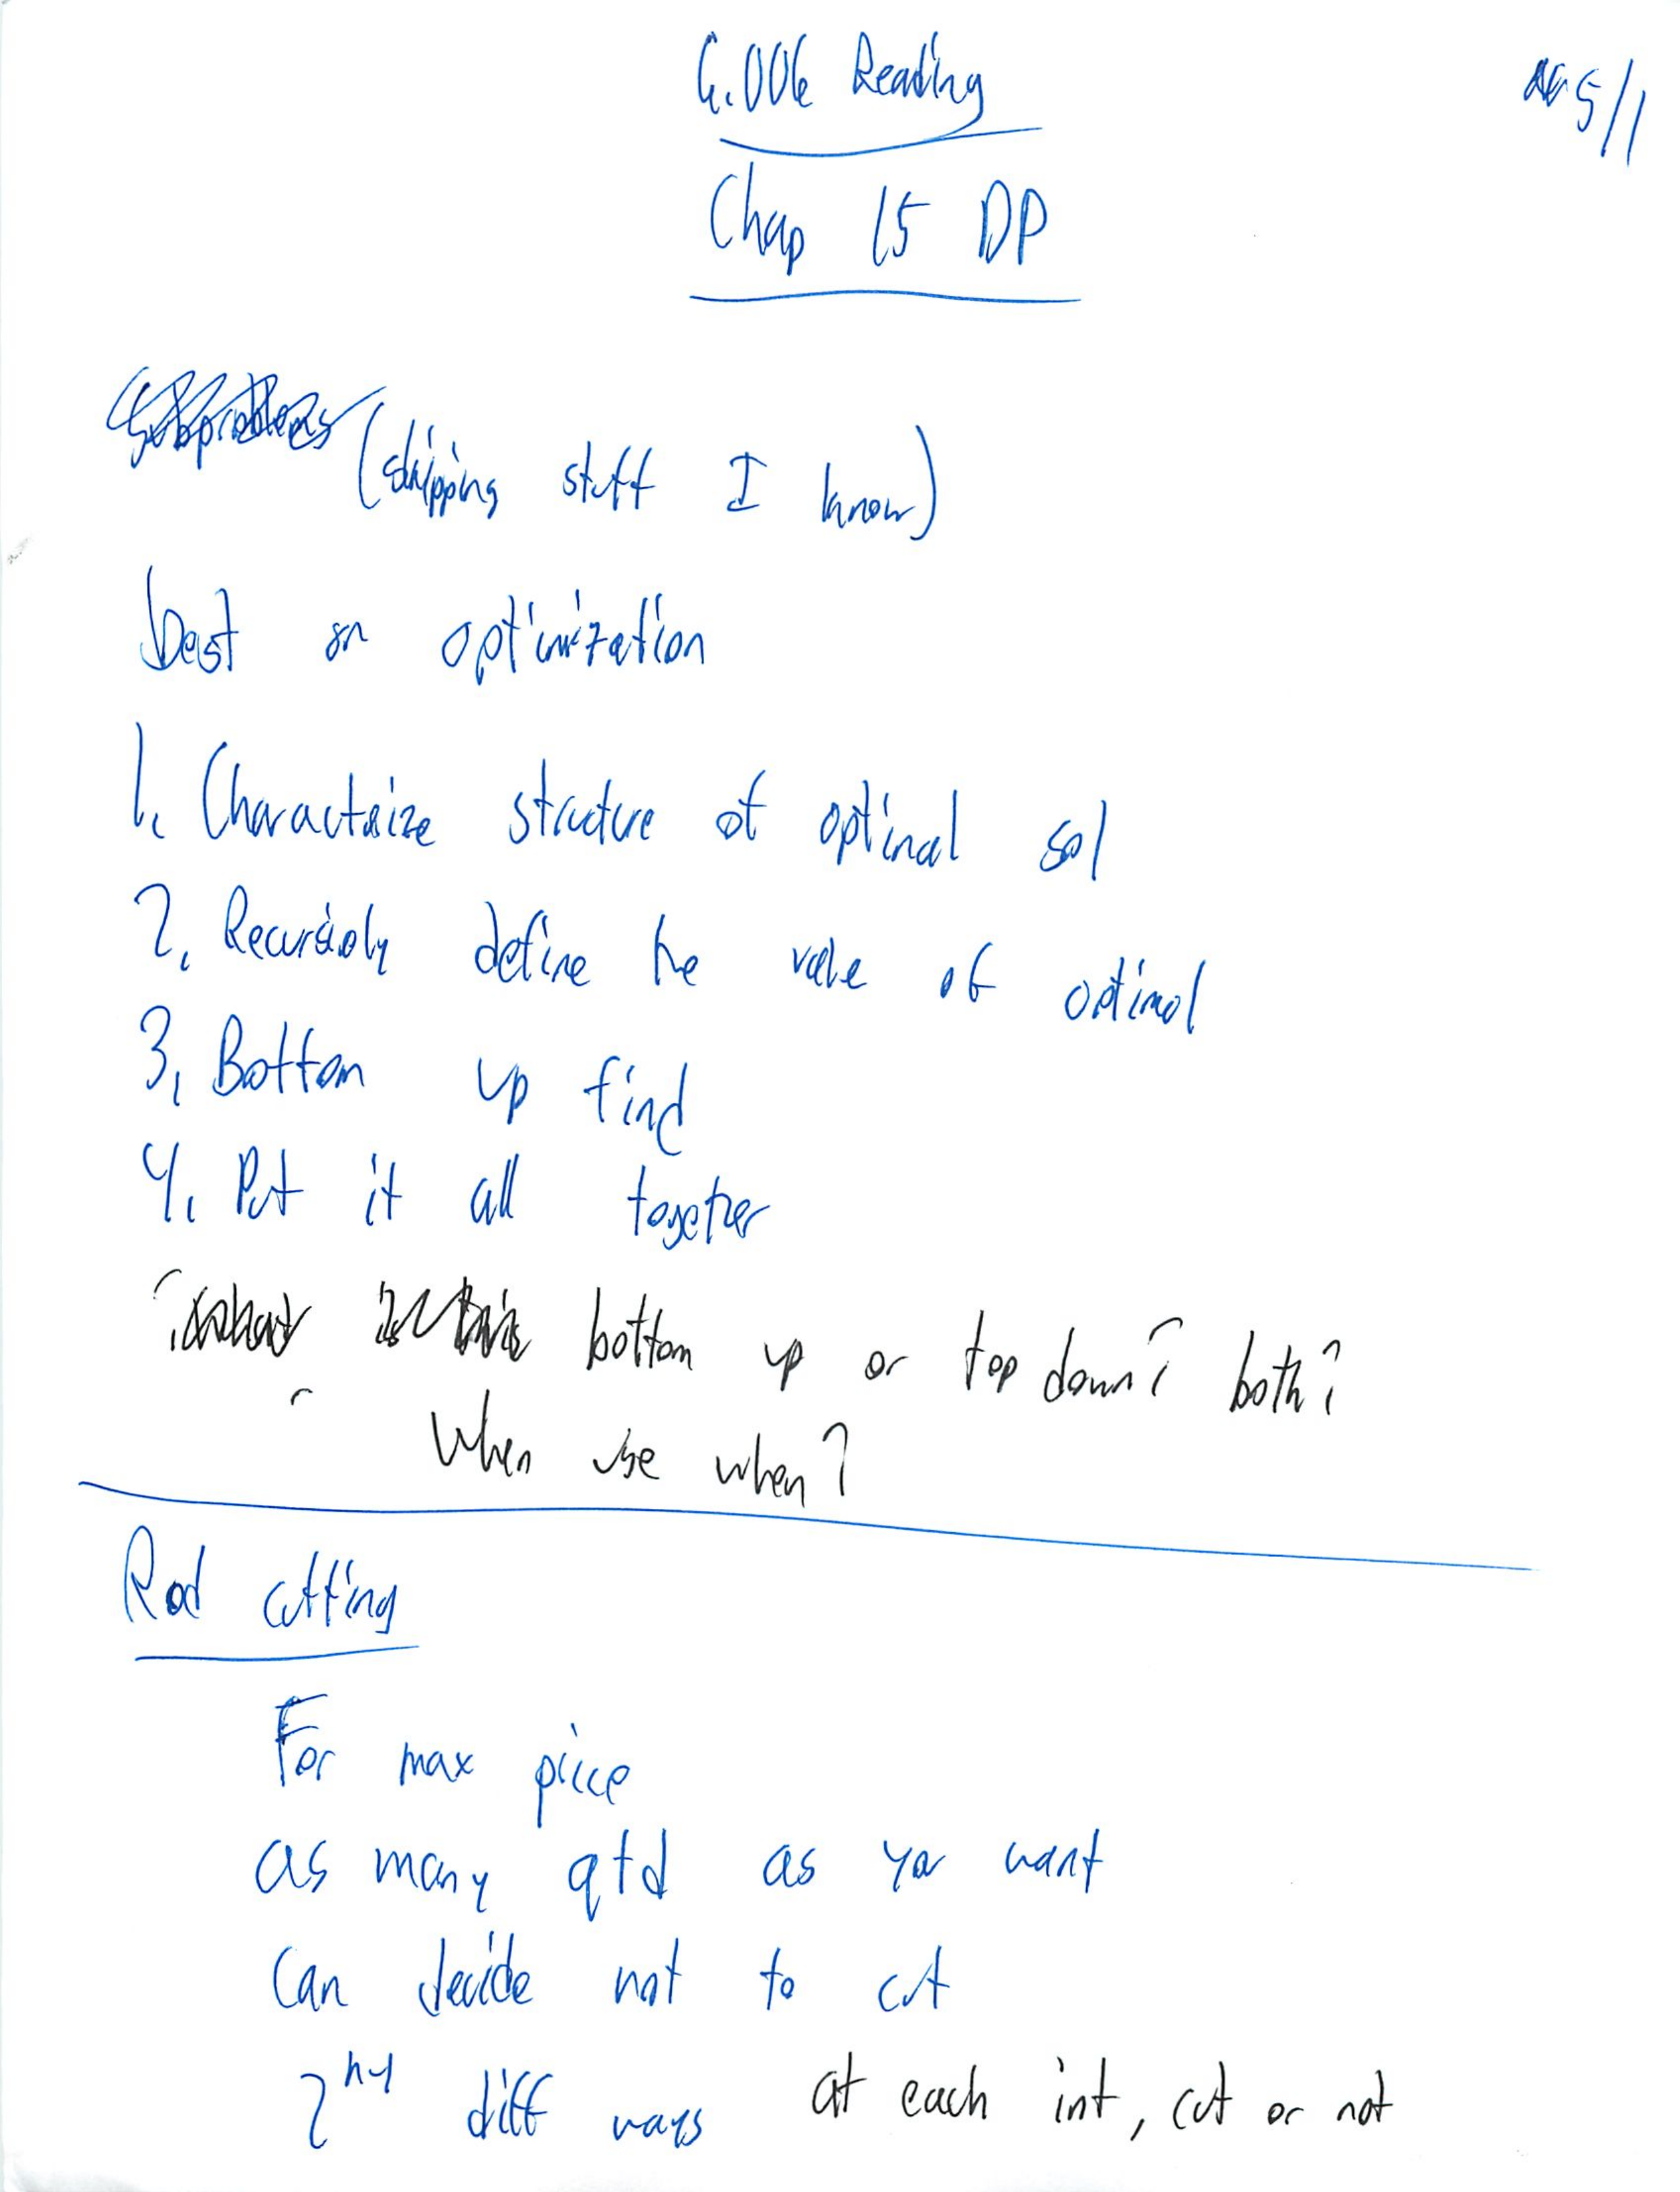 6.006 Reading
5/1
Chap 15 DP
(skipping stuff I know)
best on optimization
1. Charactaize structure of optimal sol
2. Recursively define the value of optimal
3. Bottom up find
4. Put it all together
bottom up or top down? both?
When use when?
Rod cutting
For max price
as many qtd as you want
Can decide not to cut
2^n-1 diff ways at each int, cut or not